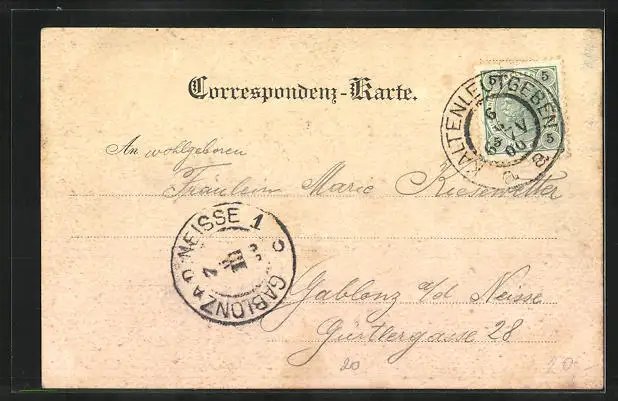 Correspondenz-Karte.
5 5
5 5
KALTENLEUTGEBEN
An wohlgeboren
Fräulein Marie Riesewetter
GABLONZ A. D. NEISSE 1
Gablonz a/d Neisse
Gürtlergasse 28
20
20